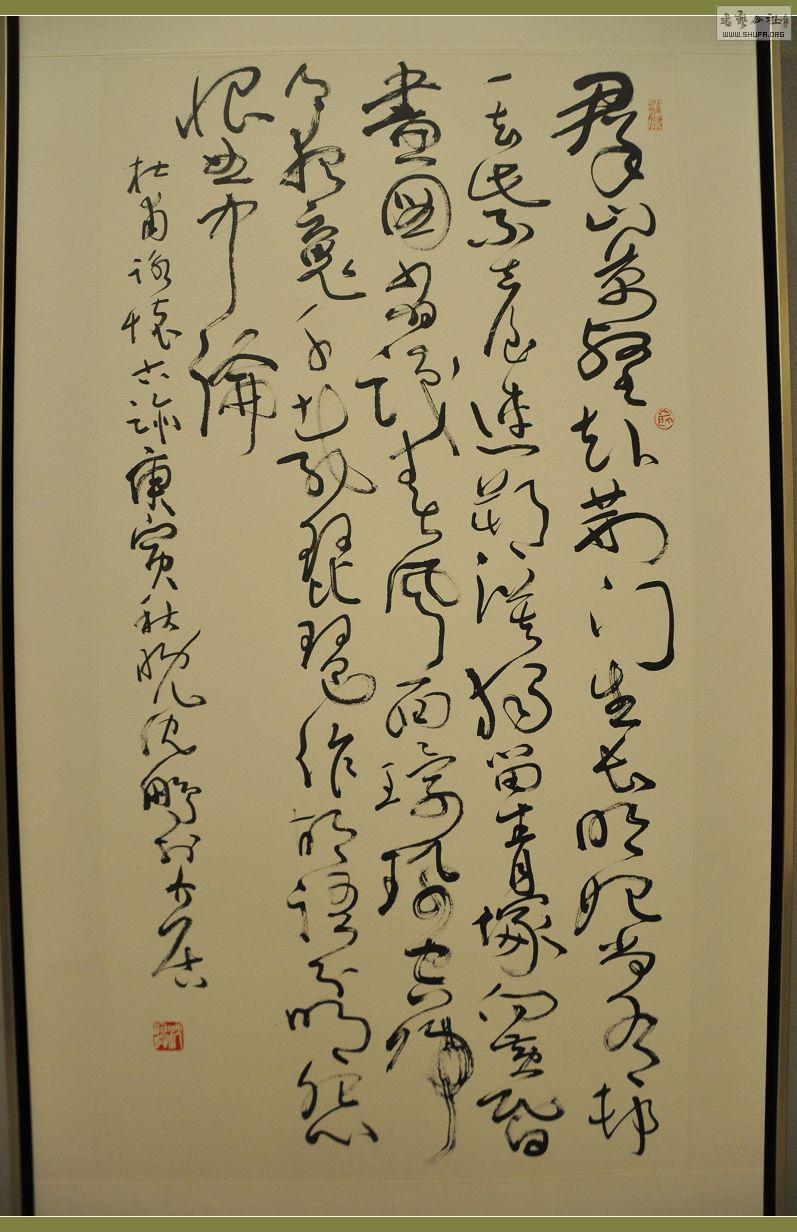 書藝公社
WWW.SHUFA.ORG
羣山萬壑赴荆门生长明妃尚有邨
一去紫臺連朔漠獨留青塚向黃昏
畫圖省識春風面環珮空歸
月夜魂千載琵琶作胡語分明怨
恨曲中論
杜甫詠懷古跡庚寅秋晚沈鵬於介居